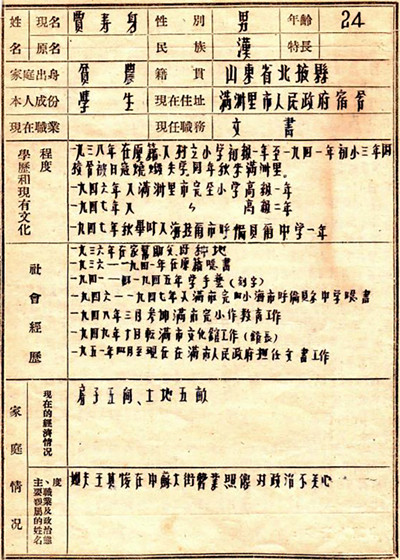 姓 現名 賈壽身 性別 男 年齡 24
名 原名 民族 漢 特長
家庭出身 貧農 籍貫 山東省北掖縣
本人成份 學生 現在住址 滿洲里市人民政府宿舍
現在職業 現任職務 文書
學歷和現有文化程度
一九三八年在原籍入村立小學初級一年至一九四一年初小三年
校舍被日寇燒燬失學同年秋季滿洲里。
一九四六年入滿洲里市完全小學高級一年
一九四七年入 〃 高級二年
一九四七年秋學時入海拉爾市呼倫貝爾中學一年
社會經歷
一九三六年在家幫助父母種地
一九三六—一九四一年在原籍唸書
一九四一—一九四五年學手藝(刻字)
一九四六—一九四七年入滿市完小海市呼倫貝爾中學唸書
一九四八年三月考加滿市完小作教育工作
一九四九年十月轉滿市文化館工作(館長)
一九五一年四月至現在在滿市人民政府担任文書工作
家庭情況
現在的經濟情況
房子五间、土地五畝
主要親屬的姓名、職業及政治態度
姐夫王其俊在中蘇大街營業照像 对政治不关心